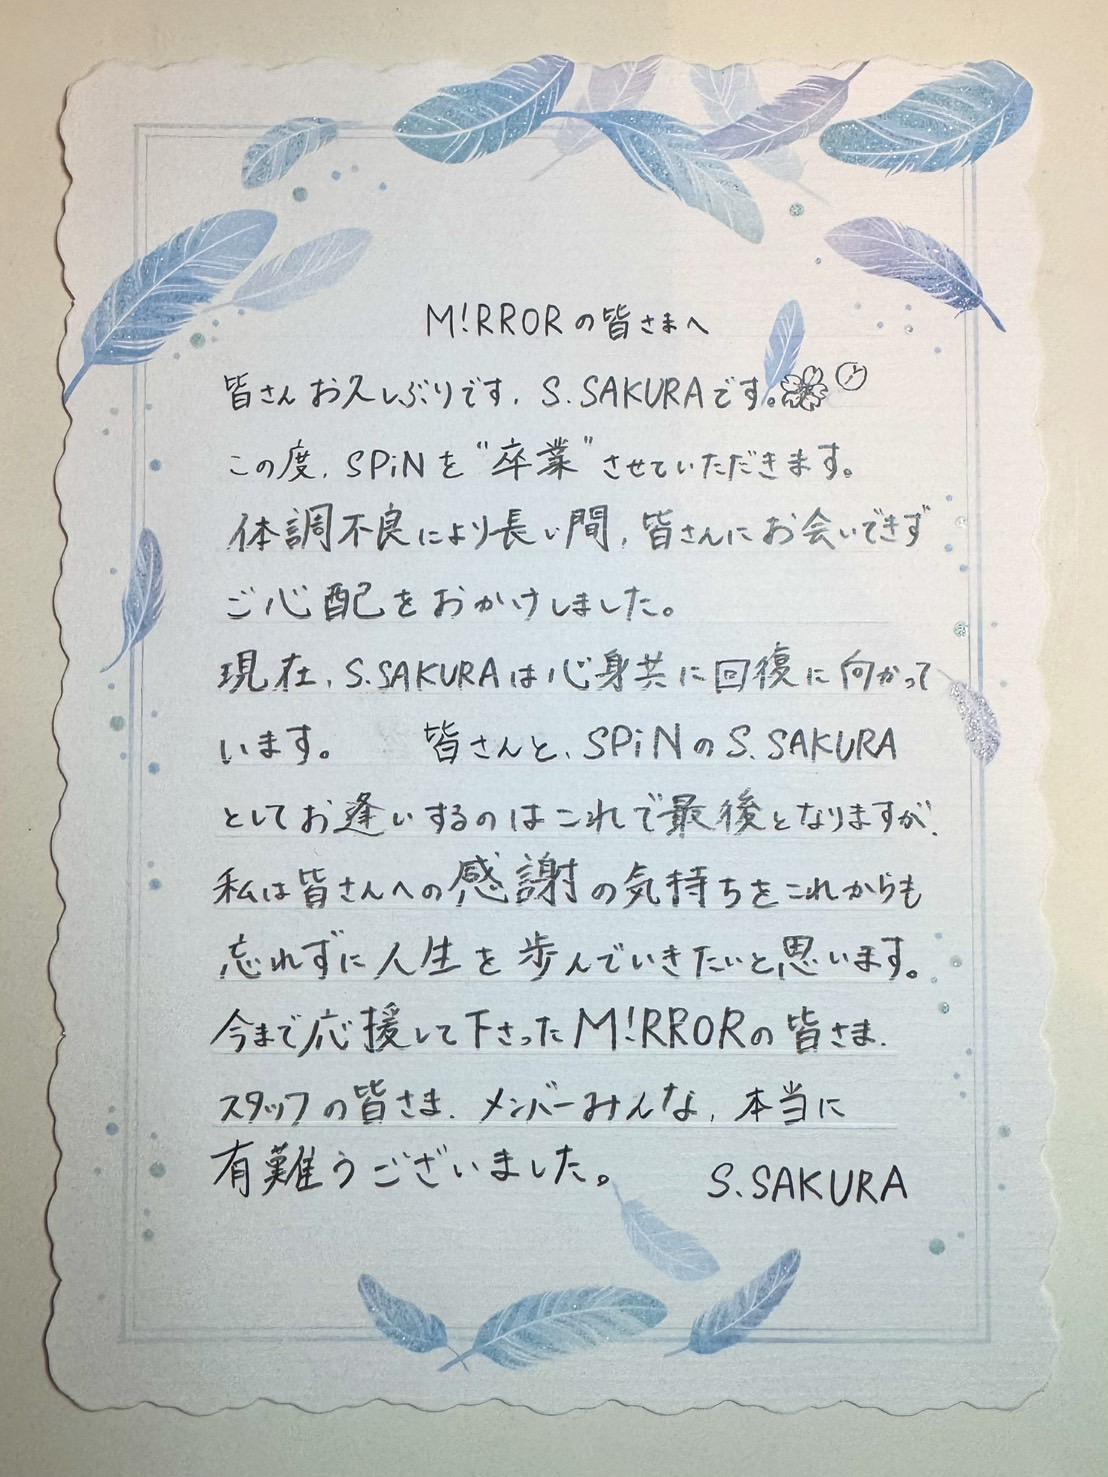 M!RRORの皆さまへ
皆さんお久しぶりです、S.SAKURAです。
この度、SPiNを“卒業”させていただきます。
体調不良により長い間、皆さんにお会いできず
ご心配をおかけしました。
現在、S.SAKURAは心身共に回復に向かって
います。 皆さんと、SPiNのS.SAKURA
としてお逢いするのはこれで最後となりますが、
私は皆さんへの感謝の気持ちをこれからも
忘れずに人生を歩んでいきたいと思います。
今まで応援して下さったM!RRORの皆さま、
スタッフの皆さま、メンバーみんな、本当に
有難うございました。 S.SAKURA